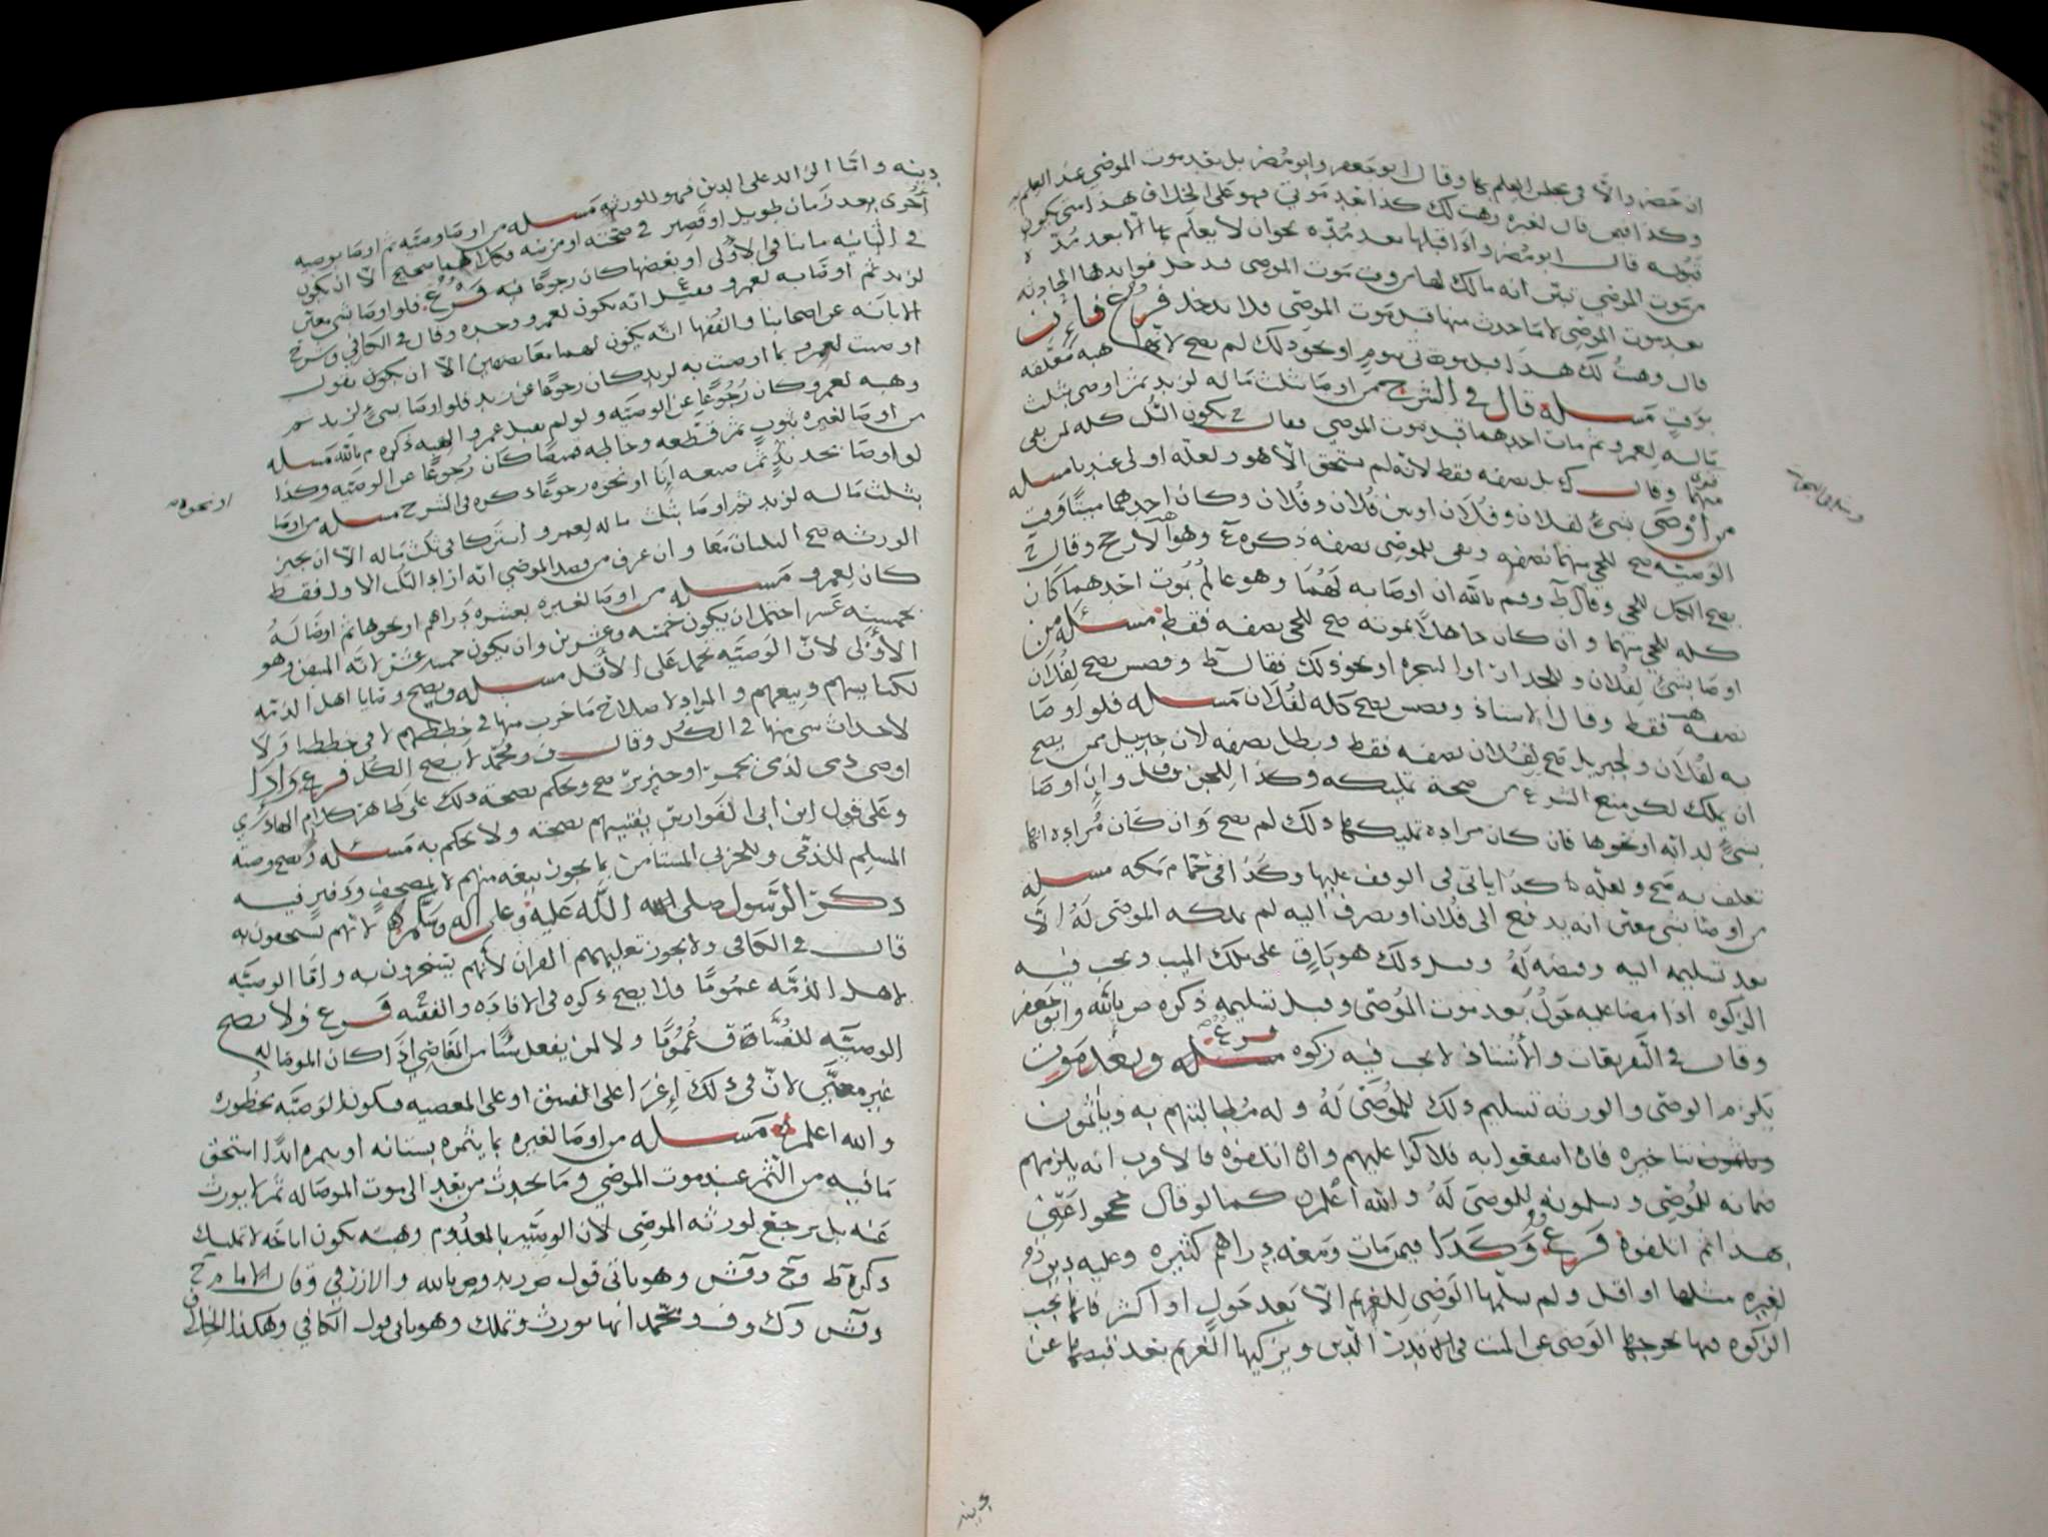 ان حضر والا في مجلس العلم بها وقال ابو جعفر وابو مضر بل بعد موت الموصي عند العلم
وكذا فيمن قال لغيره وهبت لك كذا بعد موتي فهو على الخلاف هذا متى يكون
قبوله قال ابو مضر واذا قبلها بعد مدّه نحو ان لا يعلم بها الا بعد مدّه
من موت الموصي تبيّن انه مالك لها من وقت موت الموصي فدخل فوايدها الحادثه
بعد موت الموصي لا ما حدث منها قبل موت الموصي فلا يدخل فرع فإن
قال وهبت لك هذا قبل موتي بيوم او نحو ذلك لم يصح لانها هبه معلقه
بوقت مسئله قال في الشرح من اوصا بثلث ماله لزيد ثم اوصى بثلث
ماله لعمرو ثم مات احدهما قبل موت الموصي فقال ح يكون الثلث كله لمن بقي
منهما وقال ك بل نصفه فقط لانه لم يستحق الا هو ولعله اولى عندنا مسئله
من أوصى بشيء لفلان وفلان او بين فلان وفلان وكان احدهما ميتا وقت
الوصيّه صح للحي منهما نصفه وبقى للموصي نصفه ذكره ع وهو الارجح وقال ح
يصح الكل للحي وقال ط وم بالله ان اوصا به لهما وهو عالم بموت احدهما كان
كله للحي منهما وان كان جاهلا لموته صح للحي نصفه فقط مسئله من
اوصا بشيء لفلان وللجدار او الشجره او نحو ذلك فقال ط يصح لفلان
نصفه فقط وقال الاستاذ يصح كله لفلان مسئله فلو اوصا
به لفلان ولجبريل صح لفلان نصفه فقط وبطل نصفه لان جبريل ممن يصح
ان يملك لكن منع الشرع من صحة تمليكه وكذا للجن وإن اوصا
بشيء لدابه او نحوها فان كان مراده تمليكها ذلك لم يصح وان كان مراده انها
تعلف به صح ولعله كذا ياتي في الوقف عليها وكذا في حمام مكه مسئله
من اوصا بشي معين انه يدفع الى فلان او يصرف اليه لم يملكه الموصى له إلا
بعد تسليمه اليه وقبضه له وقبل ذلك هو باق على ملك الميت ويجب فيه
الزكوه اذا مضا عليه حول بعد موت الموصي وقبل تسليمه ذكره ص بالله وابو جعفر
وقال في التفريقات والأستاذ لا يجب فيه زكوه فرع وبعد موت
يلزم الوصي والورثه تسليم ذلك للموصى له وله مطالبتهم به ويأثمون
بتاخيره فان اتفقوا به فلا كرا عليهم وان اتلفوه فالاقرب انه يلزمهم
ضمانه للموصي ويسلمونه للموصى له والله أعلم كما لو قال حججوا عني
بهذا ثم اتلفوه فرع وكذا فيمن مات ومعه دراهم كثيره وعليه دين
لغيره مثلها او اقل ولم يسلمها الوصي للغريم الا بعد حول او اكثر فانها يجب
الزكوه فيها يخرجها الوصي عن الميت في قدر الدين ويزكيها الغريم بعد قبضها عن
دينه واما الزائد على الدين فهو للورثه مسئله من اوصا وصيّه ثم اوصا بوصيه
أخرى بعد زمان طويل او قصير في صحته او مرضه فكلاهما صحيح الا ان يكون
في الثانيه ما ينافي الاولى او بعضها كان رجوعا فيه فرع فلو اوصا بشي معين
لزيد ثم اوصا به لعمرو فقيل انه يكون لعمرو وحده وقال في الكافي وشرح
الابانه عن اصحابنا والفقها انه يكون لهما معا نصفين الا ان يكون يقول
اوصيت لعمرو بما اوصيت به لزيد كان رجوعا عن زيد فلو اوصا بشيء لزيد ثم
وهبه لعمرو كان رجوعا عن الوصيّه ولو لم يقبل عمرو الهبه ذكره م بالله مسئله
من اوصا لغيره بثوب ثم قطعه وخاطه قميصا كان رجوعا عن الوصيّه وكذا
لو اوصا بحديد ثم صنعه إناء او نحوه رجوعا ذكره في الشرح مسئله من اوصا
بثلث ماله لزيد ثم اوصا بثلث ماله لعمرو اشتركا في ثلث ماله الا ان يجيز
الورثه صح الثلثان معا وان عرف من قصد الموصي انه اراد الثلث الاول فقط
كان لعمرو مسئله من اوصا لغيره بعشره دراهم او نحوها ثم اوصا له
بخمسة عشر احتمل ان يكون خمسه وعشرين وان يكون خمسه عشر لانه المتيقن وهو
الأولى لان الوصيّه تحمل على الأقل مسئله ويصح وصايا اهل الذمه
لكنايسهم وبيعهم والمراد لاصلاح ما خرب منها في خططهم لا في خططنا ولا
لاحداث شي منها في الكل وقال ف ومحمد لا يصح الكل فرع واذا
اوصى ذمي لذمي بخمر او خنزير صح ويحكم بصحة ذلك على ظاهر كلام الهادي
وعلى قول ابن ابي الفوارس يفتيهم بصحته ولا يحكم به مسئله وتصح وصية
المسلم للذمّى وللحربي المستأمن بما يجوز بيعه منهم لا بمصحف ودفتر فيه
ذكر الرسول صلى الله عليه وعلى اله وسلم لانهم يستخفون به
قال في الكافي ولا يجوز تعليمهم القران لأنهم يسخرون به واما الوصيّه
لاهل الذمّه عمومًا فلا يصح ذكره في الافاده والفقه فرع ولا يصح
الوصيّه للفساق عمومًا ولا لمن يفعل شيًا من المعاصي إذا كان الموصا له
غير معيّن لان في ذلك إغرا على الفسق او على المعصيه فيكون الوصيّه محظوره
والله اعلم مسئله من اوصا لغيره بما يثمره بستانه او شجره ابدًا استحق
ما فيه من الثمر عند موت الموصي وما يحدث من بعد الى موت الموصا له ثم لا يورث
عنه بل يرجع لورثه الموصي لان الوصيّه بالمعدوم وهبته يكون اباحه لا تمليك
ذكره ط وح وقش وهو ياتي قول ص زيد وص بالله والازرقي وقال الامام ح
وقش وك وف ومحمد انها تورث وتملك وهو ياتي قول الكافي وهكذا الخلاف
او نحوه